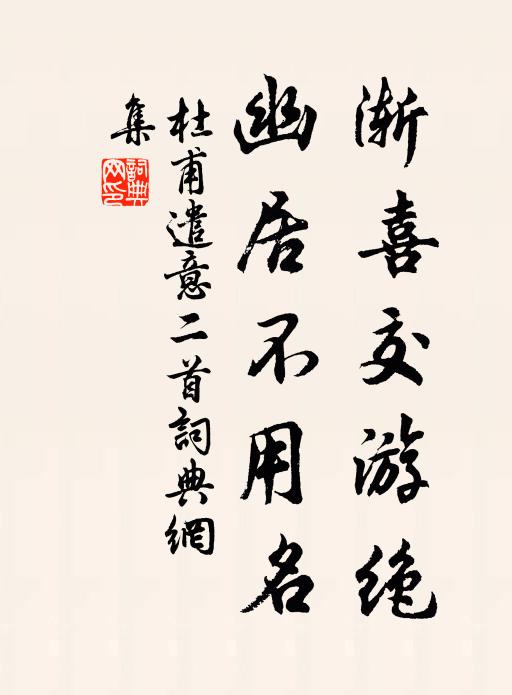 渐喜交游绝
幽居不用名
杜甫遣意二首詞典網
集
詞典
网印